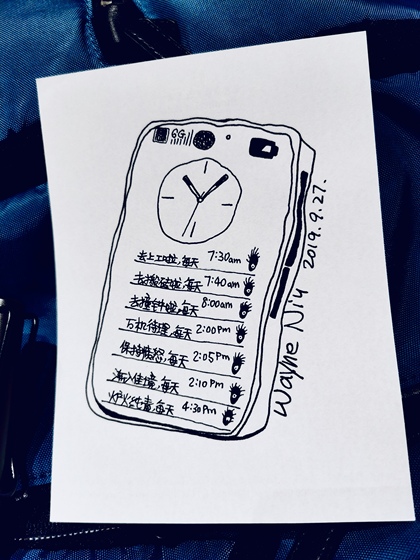 6G
去上工啦,每天 7:30am
去搬砖啦,每天 7:40am
去撞钟啦,每天 8:00am
万机待理,每天 2:00Pm
保持愤怒,每天 2:05Pm
渐入佳境,每天 2:10Pm
炉火纯青,每天 4:30Pm
Wayne Niu 2019.9.27.